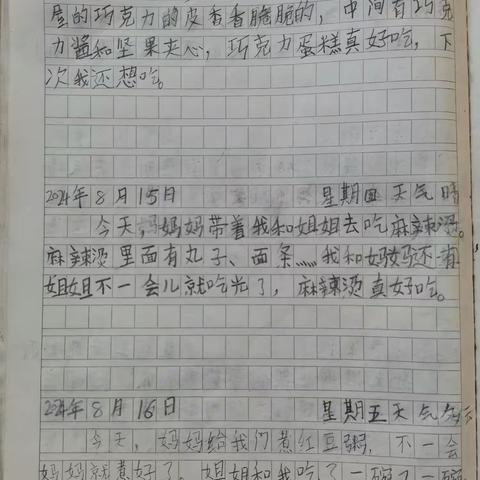 层的巧克力的皮香香脆脆的，中间有巧克
力酱和坚果夹心，巧克力蛋糕真好吃，下
次我还想吃。
2024年8月15日 星期四 天气晴
今天，妈妈带着我和姐姐去吃麻辣烫。
麻辣烫里面有丸子、面条……我和妈妈还有
姐姐不一会儿就吃光了，麻辣烫真好吃。
2024年8月16日 星期五 天气
今天，妈妈给我们煮红豆粥，不一会
妈妈就煮好了。姐姐和我吃了一碗了一碗